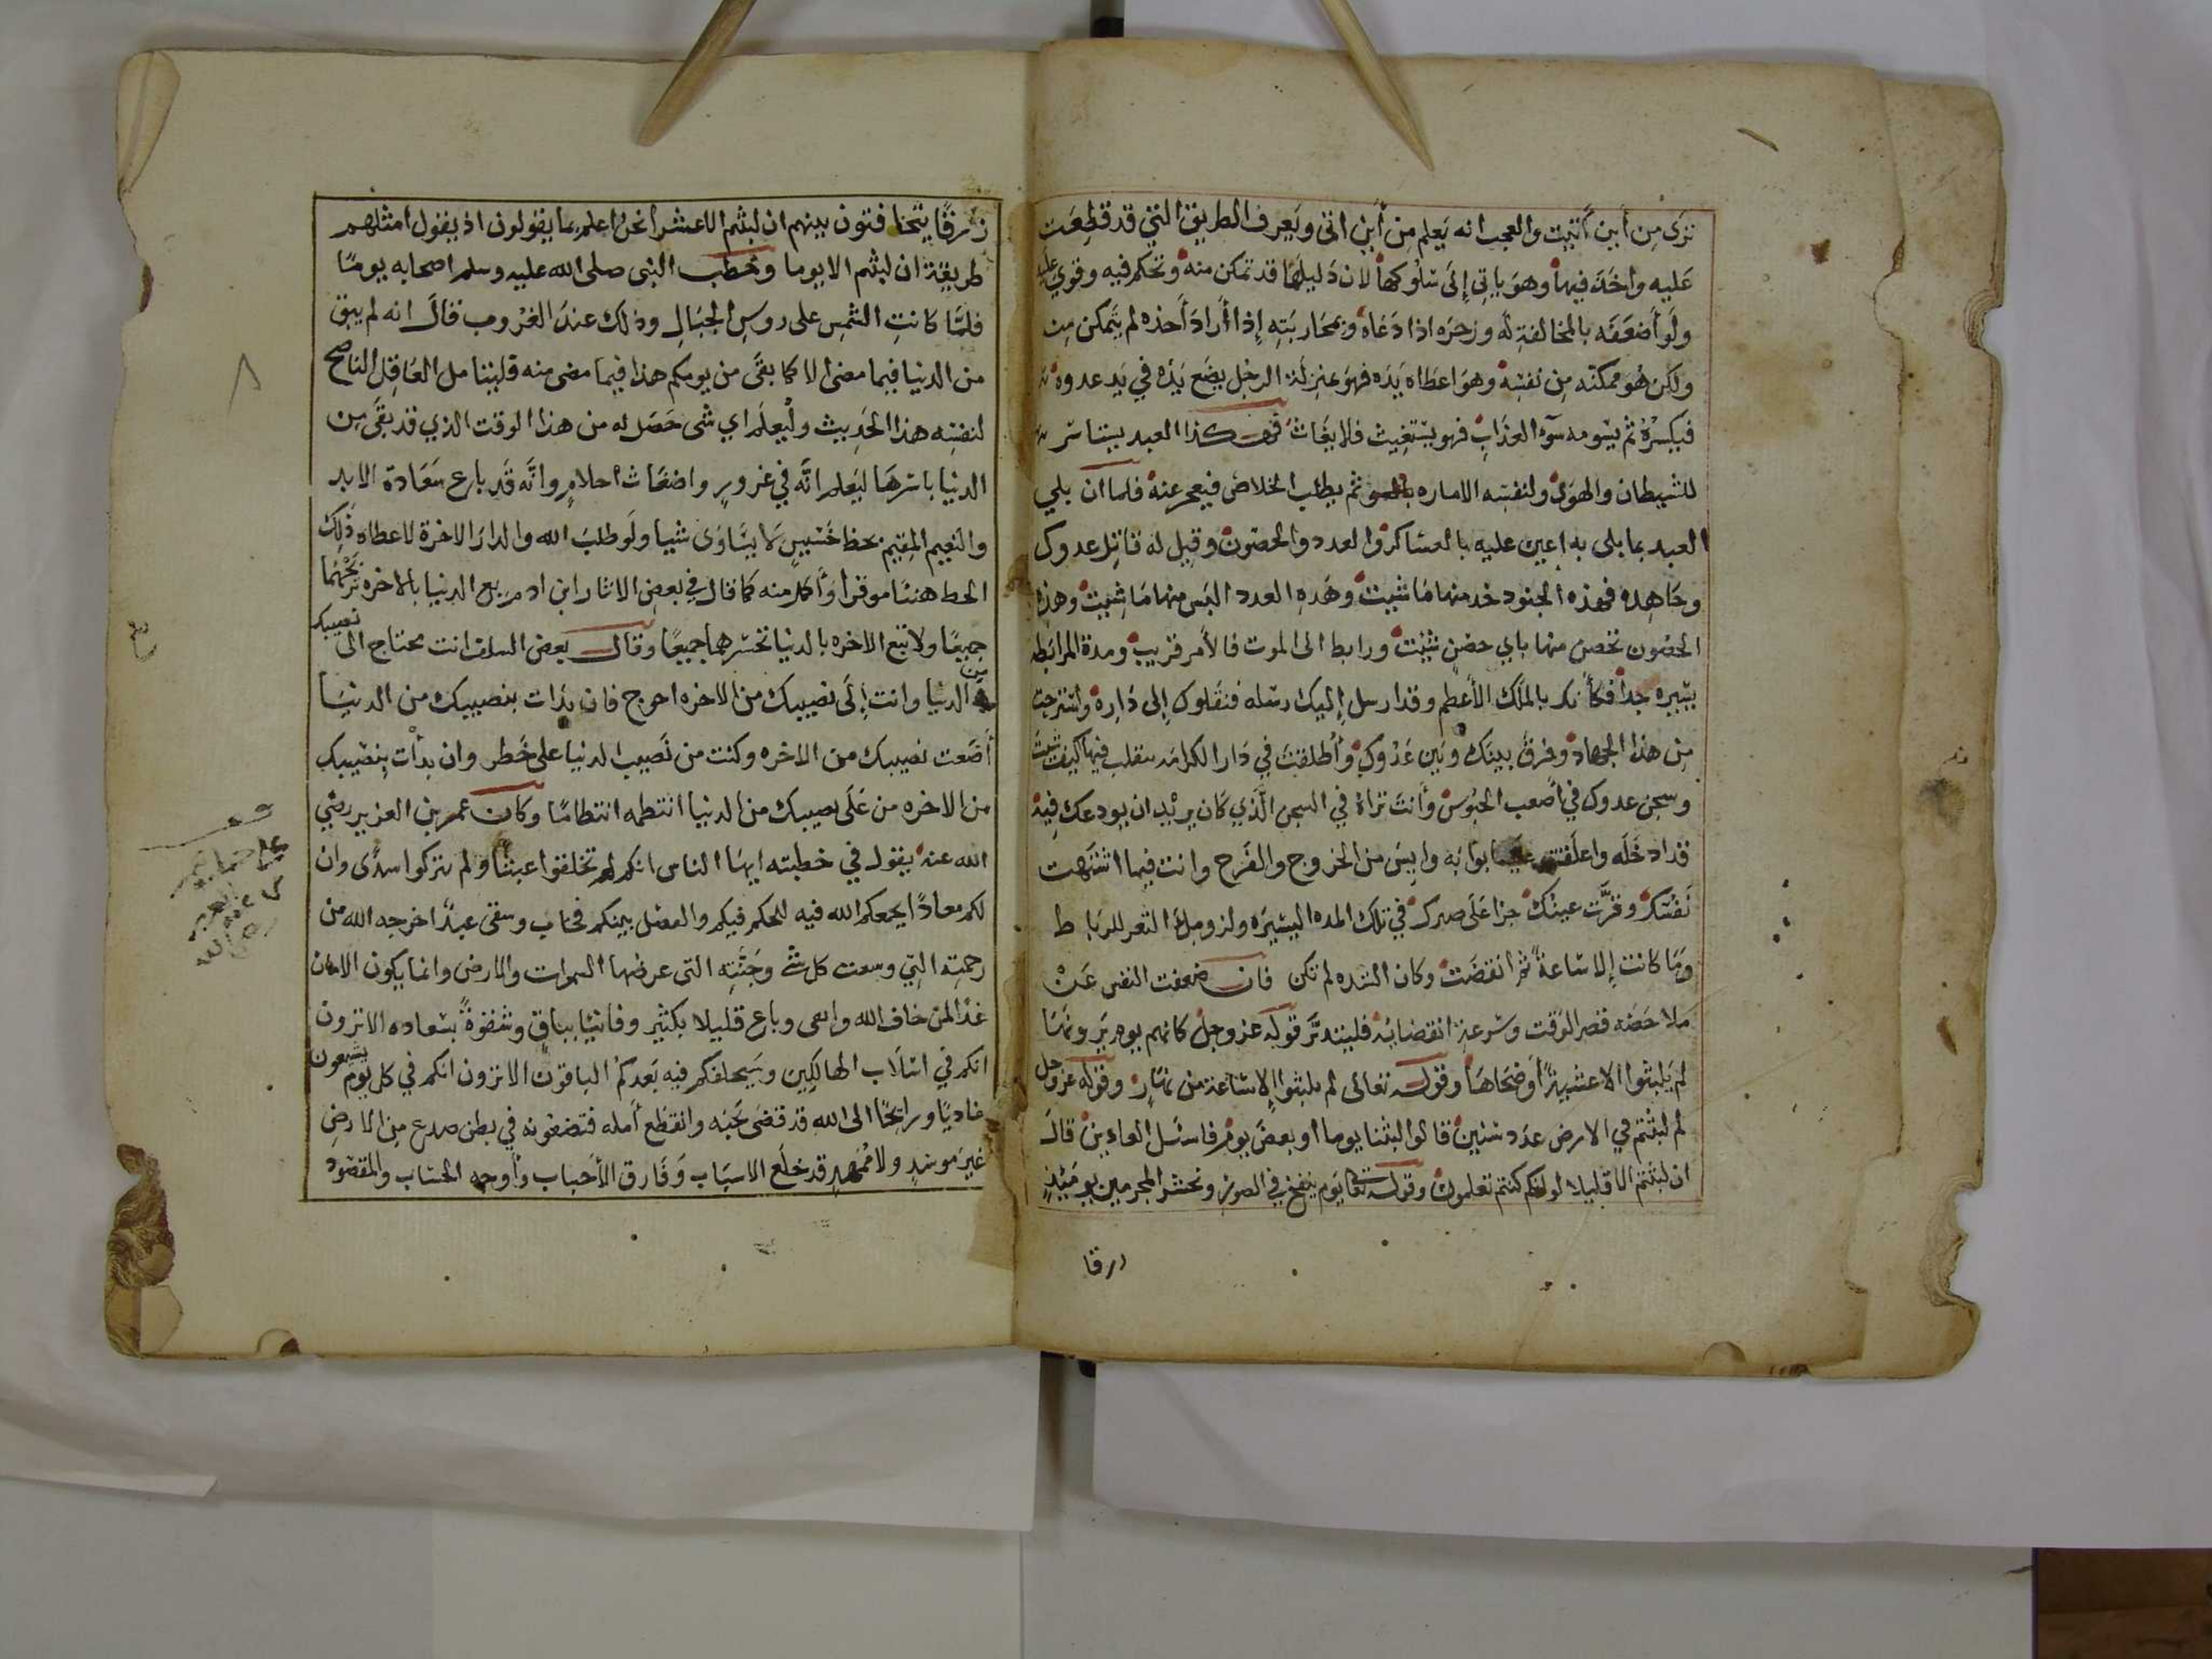 ترى من أين أتيت والعجب انه يعلم من أين اتى ويعرف الطريق التي قد قطعت
عليه واخذ فيها وهو ياتي إلى سلوكها لان دليلها قد تمكن منه وتحكم فيه وقوي عليه
ولو أضعفه بالمخالفة له وزجره اذا دعاه ومحاربته إذا أراد أخذه لم يتمكن منه
ولكن هو مكنه من نفسه وهو اعطاه يده فهو بمنزلة الرجل يضع يده في يد عدوه
فيكسره ثم يسومه سوء العذاب فهو يستغيث فلا يغاث فهكذا العبد يستاسر
للشيطان والهوى ولنفسه الاماره ثم يطلب الخلاص فيعجز عنه فلما ان بلي
العبد بما بلى به اعين عليه بالعساكر والعدد والحصون وقيل له قاتل عدوك
وجاهده فهذه الجنود خد منها ما شيت وهده العدد البس منها ما شيت وهذه
الحصون تحصن منها باي حصن شيت ورابط الى الموت فالأمر قريب ومدة المرابطه
يسيره جدا فكأنك بالملك الأعظم وقد ارسل إليك رسله فنقلوك إلى داره واسترحت
من هذا الجهاد وفرق بينك وبين عدوك وأطلقت في دار الكرامه تتقلب فيها كيف شيت
وسجن عدوك في أصعب الحبوس وأنت تراه في السجن الذي كان يريد ان يودعك فيه
قد ادخله واغلقت عليه ابوابه وايس من الخروج والفرج وانت فيما اشتهت
نفسك وقرت عينك جزا على صبرك في تلك المده اليسيره ولزومك الثغر للرباط
وما كانت إلا ساعة ثم انقضت وكان الشده لم تكن فان ضعفت النفس عن
ملاحضه قصر الوقت وسرعة انقضائه فليتدبر قوله عز وجل كانهم يوم يرونها
لم يلبثوا الا عشية أو ضحاها وقوله تعالى لم يلبثوا إلا ساعة من نهار وقوله عز وجل
لم لبثتم في الارض عدد سنين قالوا لبثنا يوما او بعض يوم فاسئل العادين قال
ان لبثتم الا قليلا لو انكم كنتم تعلمون وقوله تعا يوم ينفخ في الصور ونحشر المجرمين يومئذ
زرقا
زرقا يتخافتون بينهم ان لبثتم الا عشرا نحن اعلم بما يقولون اذ يقول امثلهم
طريقة ان لبثتم الا يوما وخطب النبى صلى الله عليه وسلم اصحابه يوما
فلما كانت الشمس على روس الجبال وذلك عند الغروب قال انه لم يبق
من الدنيا فيما مضى الا كما بقى من يومكم هذا فيما مضى منه فليتامل العاقل الناصح
لنفسه هذا الحديث وليعلم اي شى حصل له من هذا الوقت الذي قد بقى من
الدنيا باسرها ليعلم انه في غرور واضغاث احلام وانه قد باع سعادة الابد
والنعيم المقيم بحظ خسيس لا يساوى شيا ولو طلب الله والدار الاخرة لاعطاه ذلك
الحظ هنئا موفرا وأكمل منه كما قال في بعض الاثار ابن ادم بع الدنيا بالاخره تربحهما
جميعا ولا تبع الاخره بالدنيا تخسرهما جميعا وقال بعض السلف انت محتاج الى نصيبك
من الدنيا وانت إلى نصيبك من الاخره احوج فان بدات بنصيبك من الدنيا
أضعت نصيبك من الاخره وكنت من نصيب الدنيا على خطر وان بدأت بنصيبك
من الاخره من على نصيبك من الدنيا انتطمه انتطاما وكان عمر بن العزيز رضي
الله عنه يقول في خطبته ايها الناس انكم لم تخلقوا عبثا ولم تتركوا سدى وان
لكم معادا يجمعكم الله فيه للحكم فيكم والفصل بينكم فخاب وسقى عبدا اخرجه الله من
رحمته التي وسعت كل شي وجنته التى عرضها السموات والارض وانما يكون الامان
غدا لمن خاف الله واتقى وباع قليلا بكثير وفانيا بباق وشقوة بسعاده الا ترون
انكم في اسلاب الهالكين وسيخلفكم فيه بعدكم الباقون الا ترون انكم في كل يوم تشيعون
غاديا ورايحا الى الله قد قضى نحبه وانقطع أمله فتضعونه في بطن صدع من الارض
غير موسد ولا ممهد قد خلع الاسباب وفارق الأحباب وأوجه الحساب والمقصود